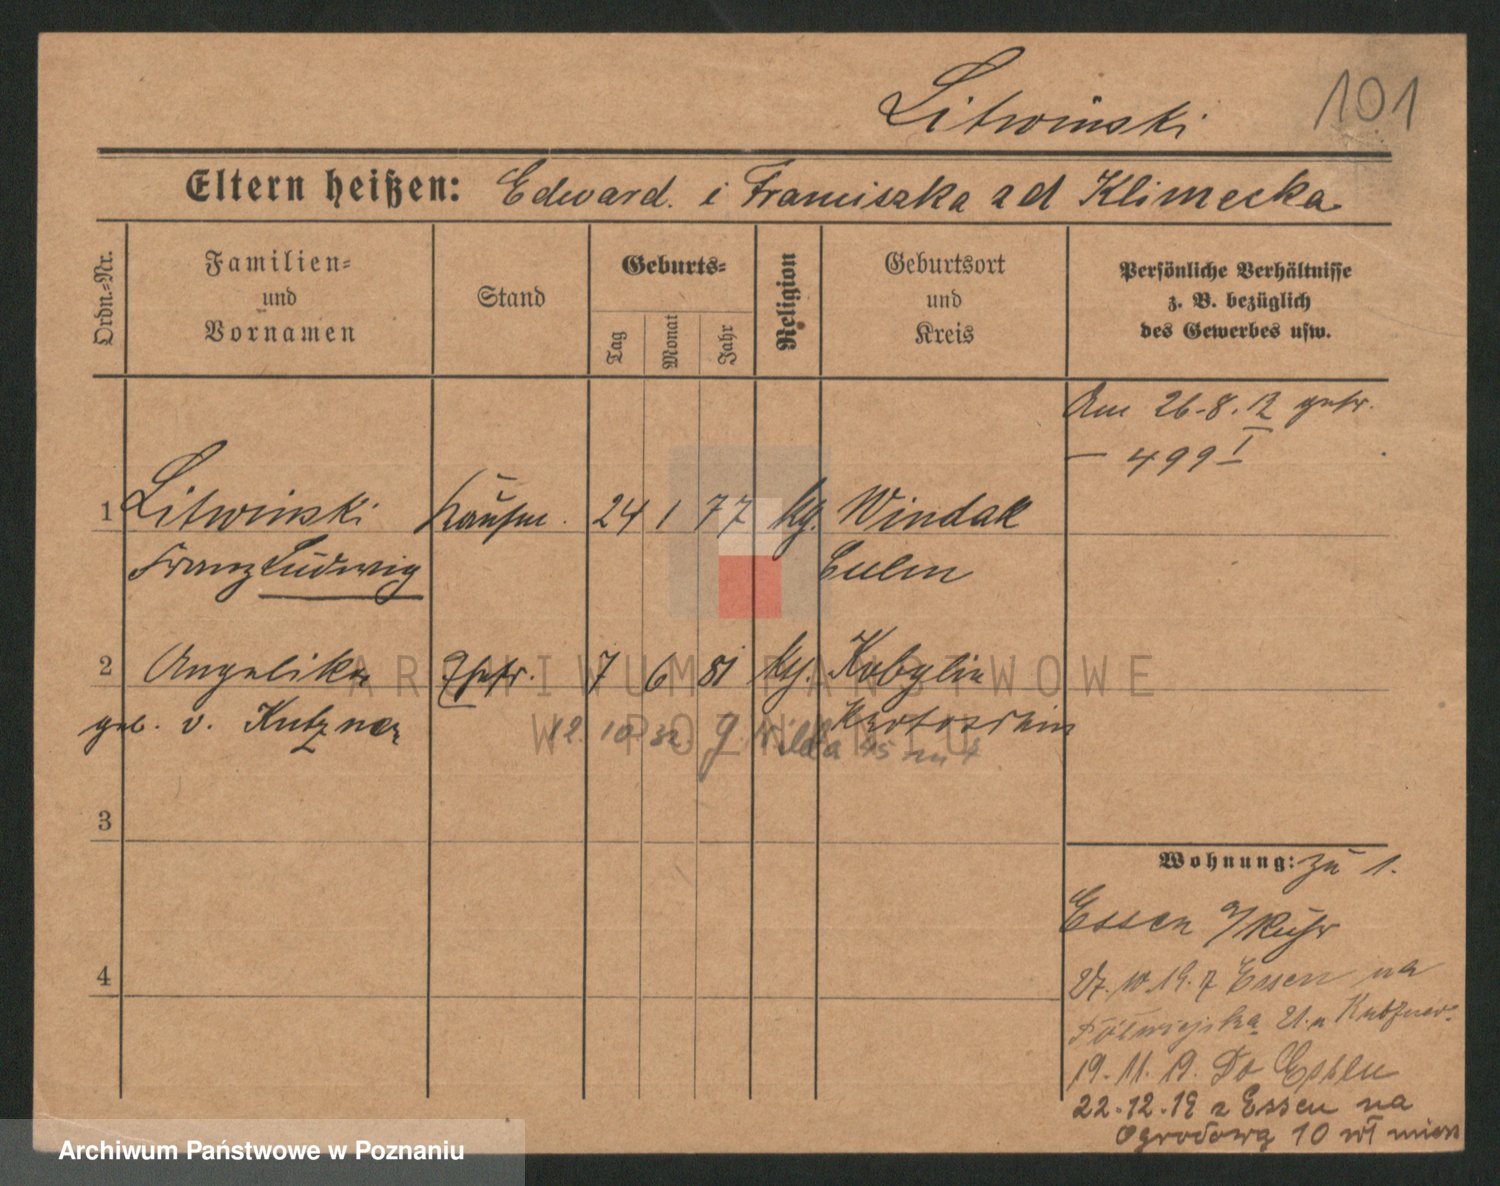 Litwinski
101
Eltern heißen: Edward. i Franciszka z d Klimecka
Ordn.-Nr.
Familien-
und
Vornamen
Stand
Geburts-
Tag
Monat
Jahr
Religion
Geburtsort
und
Kreis
Persönliche Verhältnisse
z. B. bezüglich
des Gewerbes usw.
Am 26.8.12 getr.
— 499 I
1 Litwinski Kaufm. 24 1 77 kg. Windak
Franz Ludwig Culm
2 Angelika Ehefr. 7 6 81 kg. Kobylin
geb. v. Kutzner Krotoschin
12. 10. 32. Wilda 45 m 4
3
4
Wohnung: zu 1.
Essen a/Ruhr
27. 10 19. z Essen na
Półwiejska 21. u Kutzner.
19. 11. 19. Do Essen
22.12.19 z Essen na
Ogrodową 10 wł miesz
ARCHIWUM PAŃSTWOWE
W POZNANIU
Archiwum Państwowe w Poznaniu